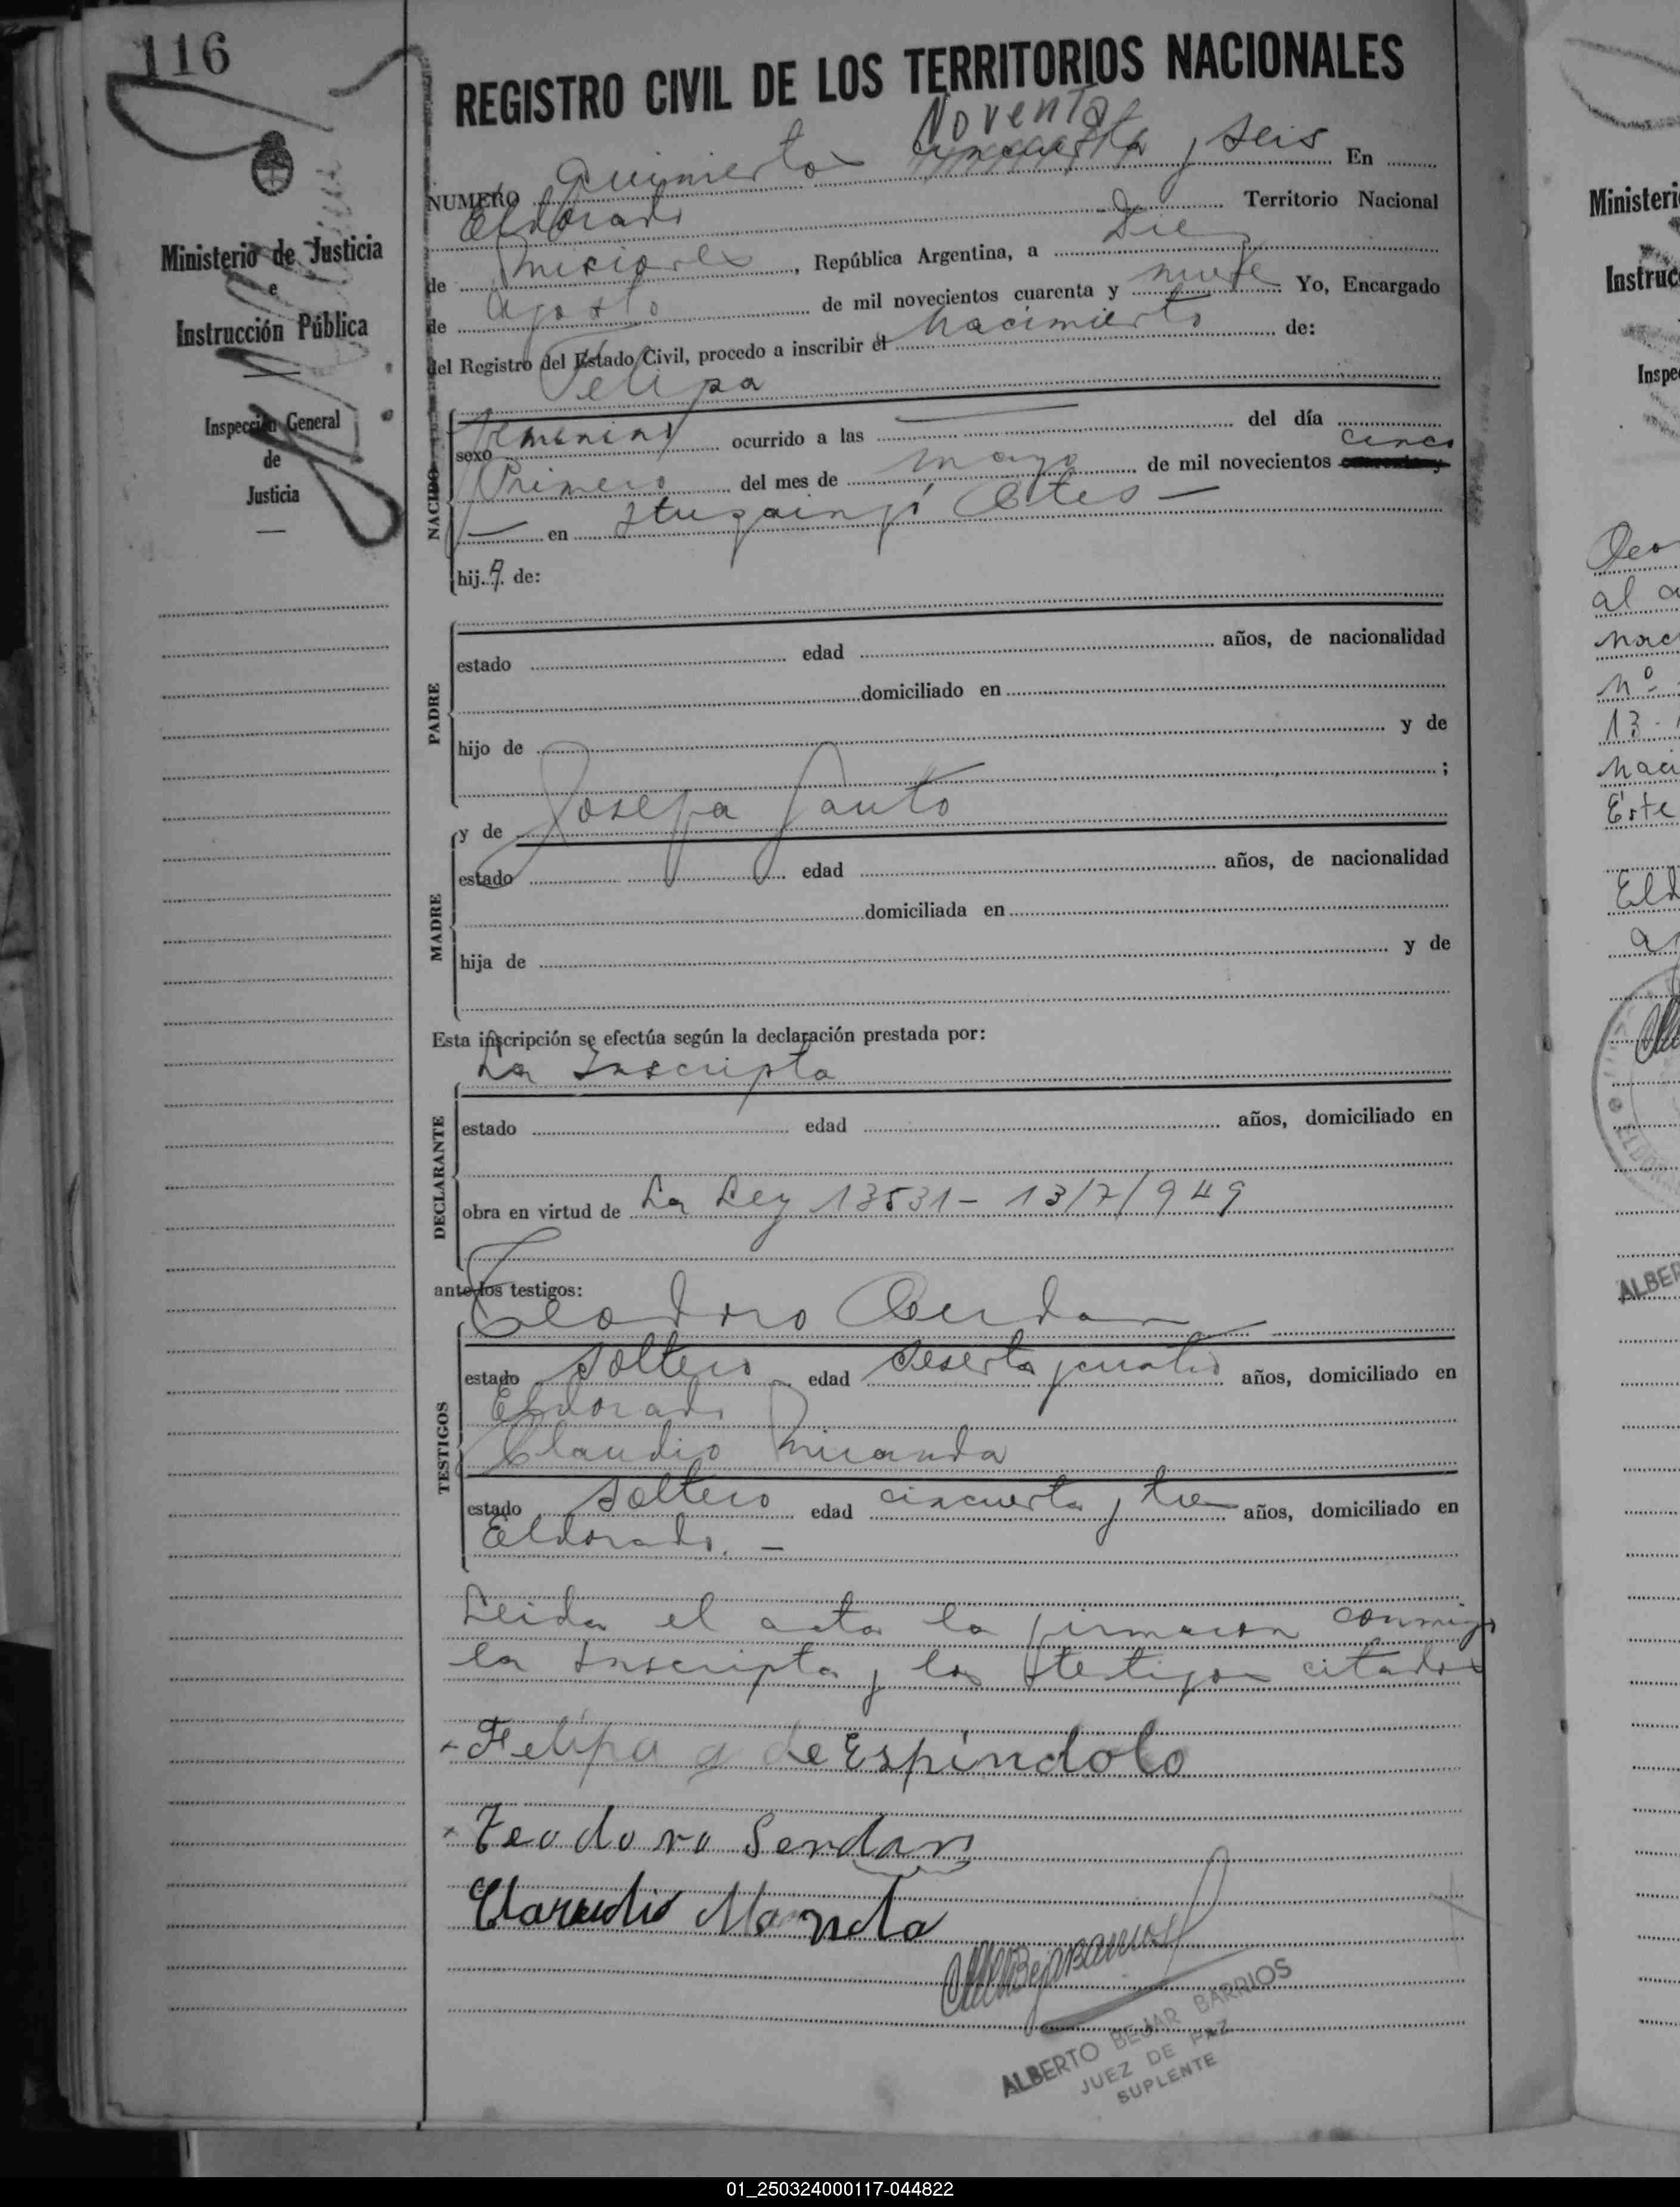 116
REGISTRO CIVIL DE LOS TERRITORIOS NACIONALES
Noventa
NUMERO Quinientos cincuenta y seis En
Eldorado Territorio Nacional
de Misiones, República Argentina, a Diez
de Agosto de mil novecientos cuarenta y nueve Yo, Encargado
del Registro del Estado Civil, procedo a inscribir el nacimiento de:
Felipa
NACIDO
sexo femenino ocurrido a las — del día
Primero del mes de mayo de mil novecientos cinco
— en Ituzaingó Ctes —
hija de:
PADRE
estado edad años, de nacionalidad
domiciliado en
hijo de y de
;
y de Josefa Santo
MADRE
estado edad años, de nacionalidad
domiciliada en
hija de y de
Esta inscripción se efectúa según la declaración prestada por:
La Inscripta
DECLARANTE
estado edad años, domiciliado en
obra en virtud de La Ley 13531 - 13/7/949
ante los testigos:
Teodoro Cerdan
TESTIGOS
estado soltero edad sesenta y cuatro años, domiciliado en
Eldorado
Claudio Miranda
estado soltero edad cincuenta y tres años, domiciliado en
Eldorado. —
Leida el acta la firmaron conmigo
la Inscripta y los testigos citados
Felipa a de Espíndolo
Teodoro Serdan
Claudio
ALBERTO BEJAR BARRIOS
JUEZ DE PAZ
SUPLENTE
Ministerio de Justicia
e
Instrucción Pública
Inspección General
de
Justicia
Ministeri
Instruc
Inspe
al
nac
Nº
13
naci
Este
Eld
ALBER
01_250324000117-044822